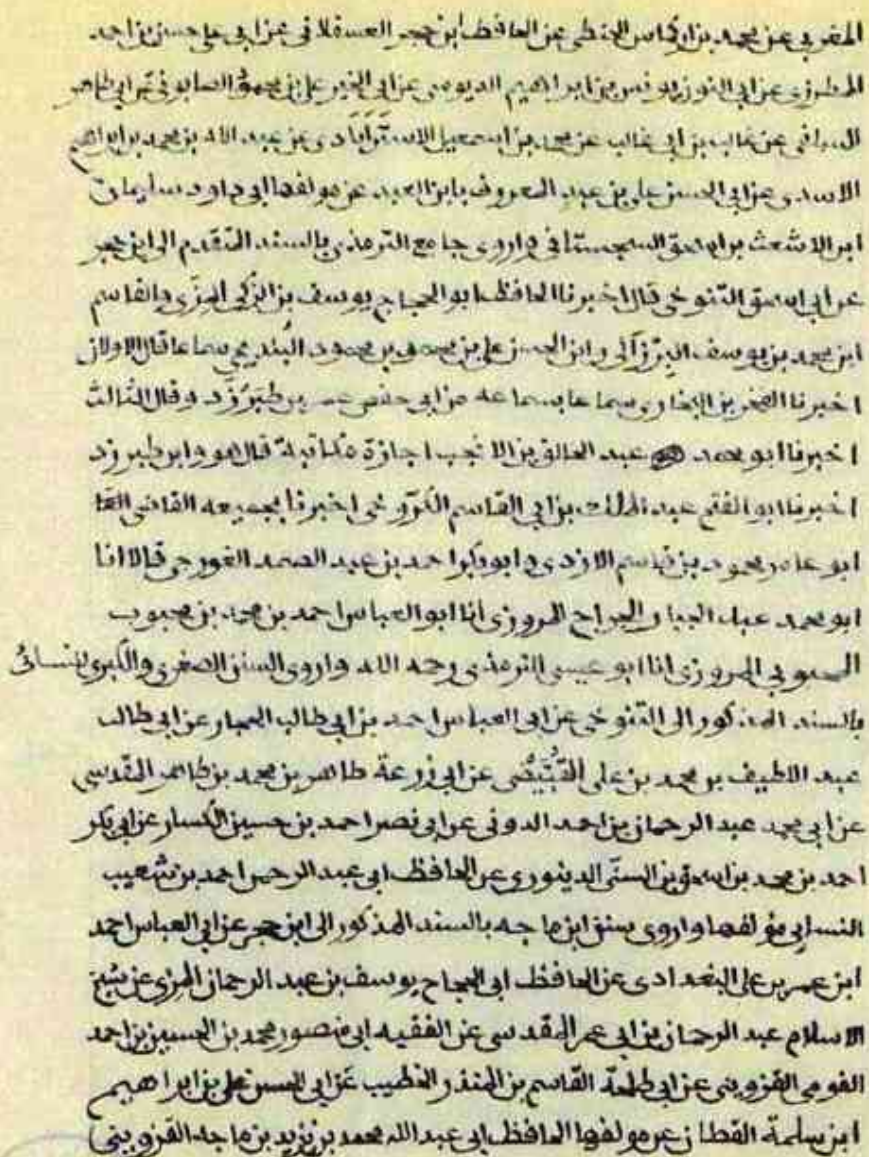 المغربي عن محمد بن اركماس الحنفي عن الحافظ ابن حجر العسقلاني عن ابي علي حسن بن احمد
المطرزي عن ابي النون يونس بن ابراهيم الدبوسي عن ابي الخير علي بن محمود الصابوني عن ابي طاهر
السلفي عن غالب بن ابي غالب عن محمد بن اسمعيل الاسترابادي عن عبد الله بن محمد بن ابراهيم
الاسدي عن ابي الحسن علي بن عبد المعروف بابن العبد عن مولفها ابي داود سليمان
ابن الاشعث بن اسحق السجستاني واروي جامع الترمذي بالسند المتقدم الى ابن حجر
عن ابي اسحق التنوخي قال اخبرنا الحافظ ابو الحجاج يوسف بن الزكي المزي والقاسم
ابن محمد بن يوسف البرزالي وابن الحسن علي بن محمد بن محمود البندنيجي سماعا قال الاولان
اخبرنا الفخر بن البخاري سماعا بسماعه من ابي حفص عمر بن طبرزد وقال الثالث
اخبرنا ابو محمد عبد الخالق بن الانجب اجازة مكاتبة قال هو وابن طبرزد
اخبرنا ابو الفتح عبد الملك بن ابي القاسم الكروخي اخبرنا بجميعه القاضي
ابو عامر محمود بن قاسم الازدي وابو بكر احمد بن عبد الصمد الغورجي قالا انا
ابو محمد عبد الجبار الجراح المروزي انا ابو العباس احمد بن محمد بن محبوب
المحبوبي المروزي انا ابو عيسى الترمذي رحمه الله واروي السنن الصغرى والكبرى للنسائي
بالسند المذكور الى التنوخي عن ابي العباس احمد بن ابي طالب الحجار عن ابي طالب
عبد اللطيف بن محمد بن علي القبيطي عن ابي زرعة طاهر بن محمد بن طاهر المقدسي
عن ابي محمد عبد الرحمان بن احمد الدوني عن ابي نصر احمد بن حسين الكسار عن ابي بكر
احمد بن محمد بن اسحق بن السني الدينوري عن الحافظ ابي عبد الرحمن احمد بن شعيب
النسابي مؤلفها واروي سنن ابن ماجه بالسند المذكور الى ابن حجر عن ابي العباس احمد
ابن عمر بن علي البغدادي عن الحافظ ابي الحجاج يوسف بن عبد الرحمان المزي عن شيخ
الاسلام عبد الرحمان بن ابي عمر المقدسي عن الفقيه ابي منصور محمد بن الحسين بن احمد
القومي القزويني عن ابي طلحة القاسم بن المنذر الخطيب عن ابي الحسن علي بن ابراهيم
ابن سلمة القطان عن مولفها الحافظ ابي عبد الله محمد بن يزيد بن ماجه القزويني